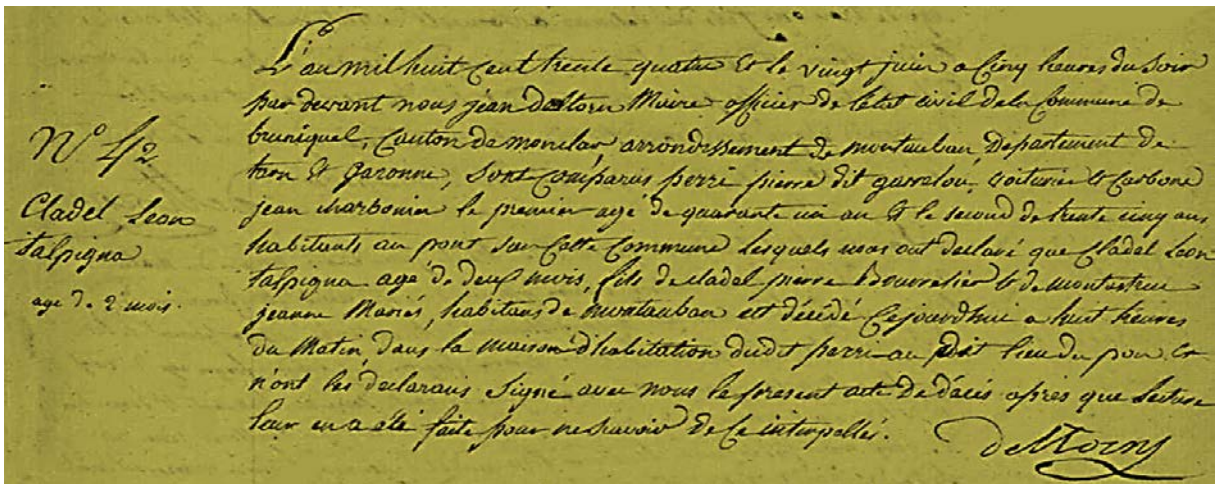 N.º 42
Cladel Leon
talpigna
agé de 2 mois.
L'an mil huit cent trente quatre et le vingt juin a cinq heures du soir
par devant nous jean Maire officier de l'etat civil de la commune de
bruniquel, canton de monclar arrondissement de montauban Departement de
tarn et Garonne, sont comparus perri pierre dit garrelou, voiturier et Carbone
jean charbonier le premier agé de quarante un an et le second de trente cinq ans
habitants au pont sur cette Commune lesquels nous ont declaré que Cladel Leon
talpigna agé de deux mois, fils de cladel pierre Bourrelier et de montastruc
jeanne Mariés, habitans de montauban est décédé cejourdhui a huit heures
du Matin, dans la maison d'habitation dudit perri au dit lieu du pon et
n'ont les declarans signé avec nous le present acte de décès apres que lecture
leur en a été faite pour ne scavoir de ce interpellés.